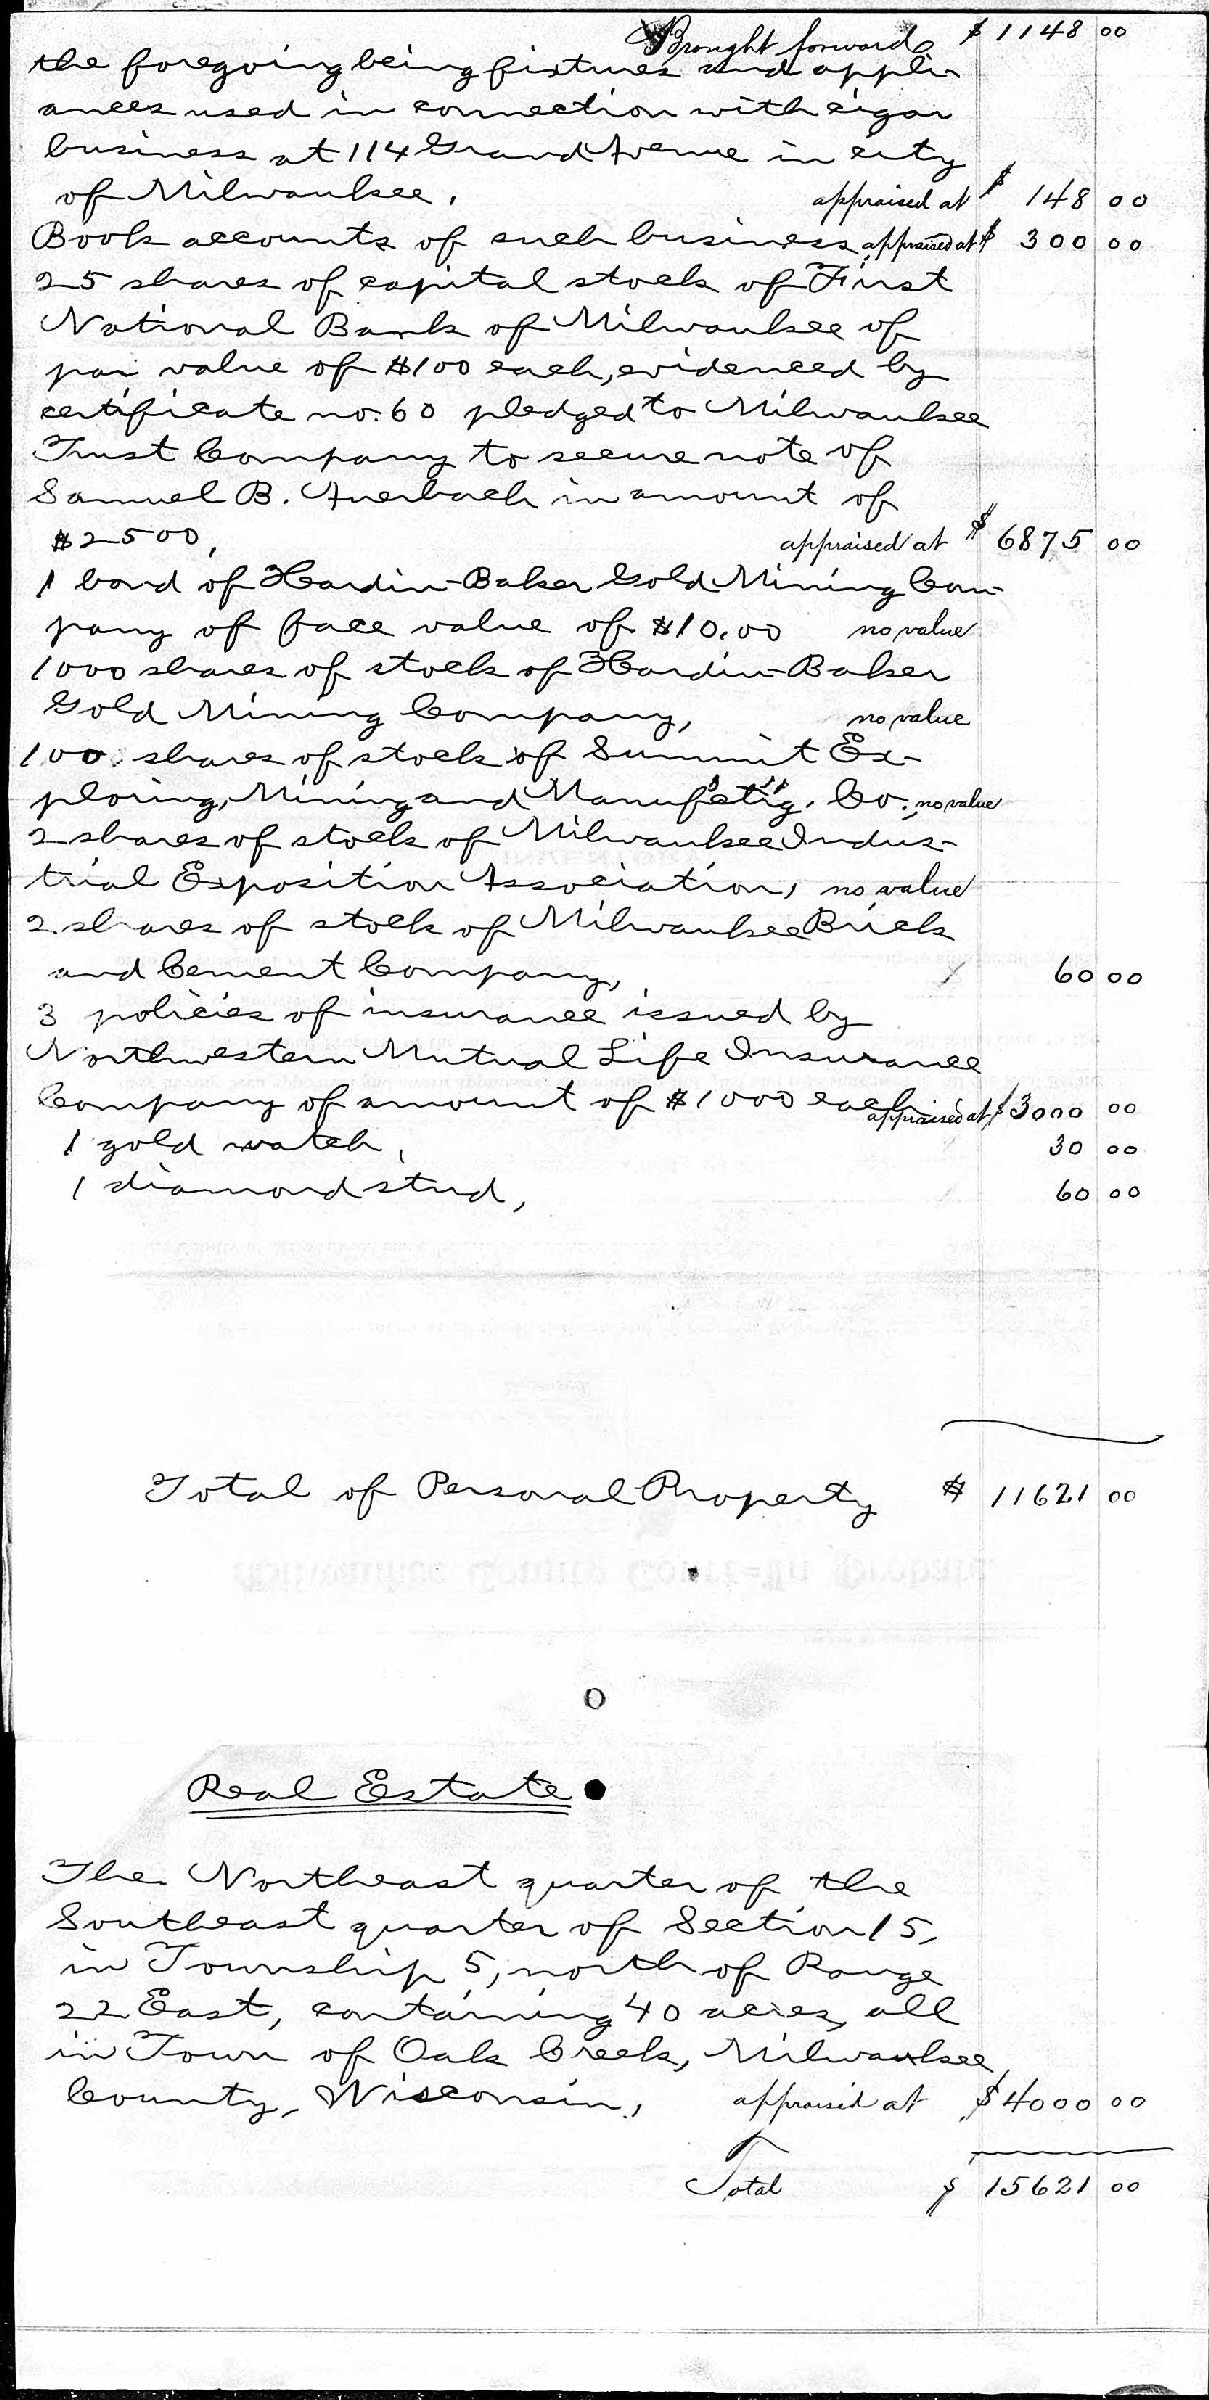 Brought forward $1148 00
the foregoing being fixtures and appli-
ances used in connection with cigar
business at 114 Grand Avenue in city
of Milwaukee. appraised at $ 148 00
Book accounts of such business, appraised at $ 300 00
25 shares of capital stock of First
National Bank of Milwaukee of
par value of $100 each, evidenced by
certificate no. 60 pledged to Milwaukee
Trust Company to secure note of
Samuel B. Auerbach in amount of
$2500, appraised at $ 6875 00
1 bond of Hardin-Baker Gold Mining Com-
pany of face value of $10.00 no value
1000 shares of stock of Hardin-Baker
Gold Mining Company, no value
100 shares of stock of Summit Ex-
ploring, Mining and Manufctrg. Co., no value
2 shares of stock of Milwaukee Indus-
trial Exposition Association, no value
2 shares of stock of Milwaukee Brick
and Cement Company, 60 00
3 policies of insurance issued by
Northwestern Mutual Life Insurance
Company of amount of $1000 each appraised at $3000 00
1 gold watch, 30 00
1 diamond stud, 60 00
Total of Personal Property $ 11621 00
Real Estate
The Northeast quarter of the
Southeast quarter of Section 15,
in Township 5, north of Range
22 East, containing 40 acres, all
in Town of Oak Creek, Milwaukee
County, Wisconsin, appraised at $4000 00
Total $ 15621 00